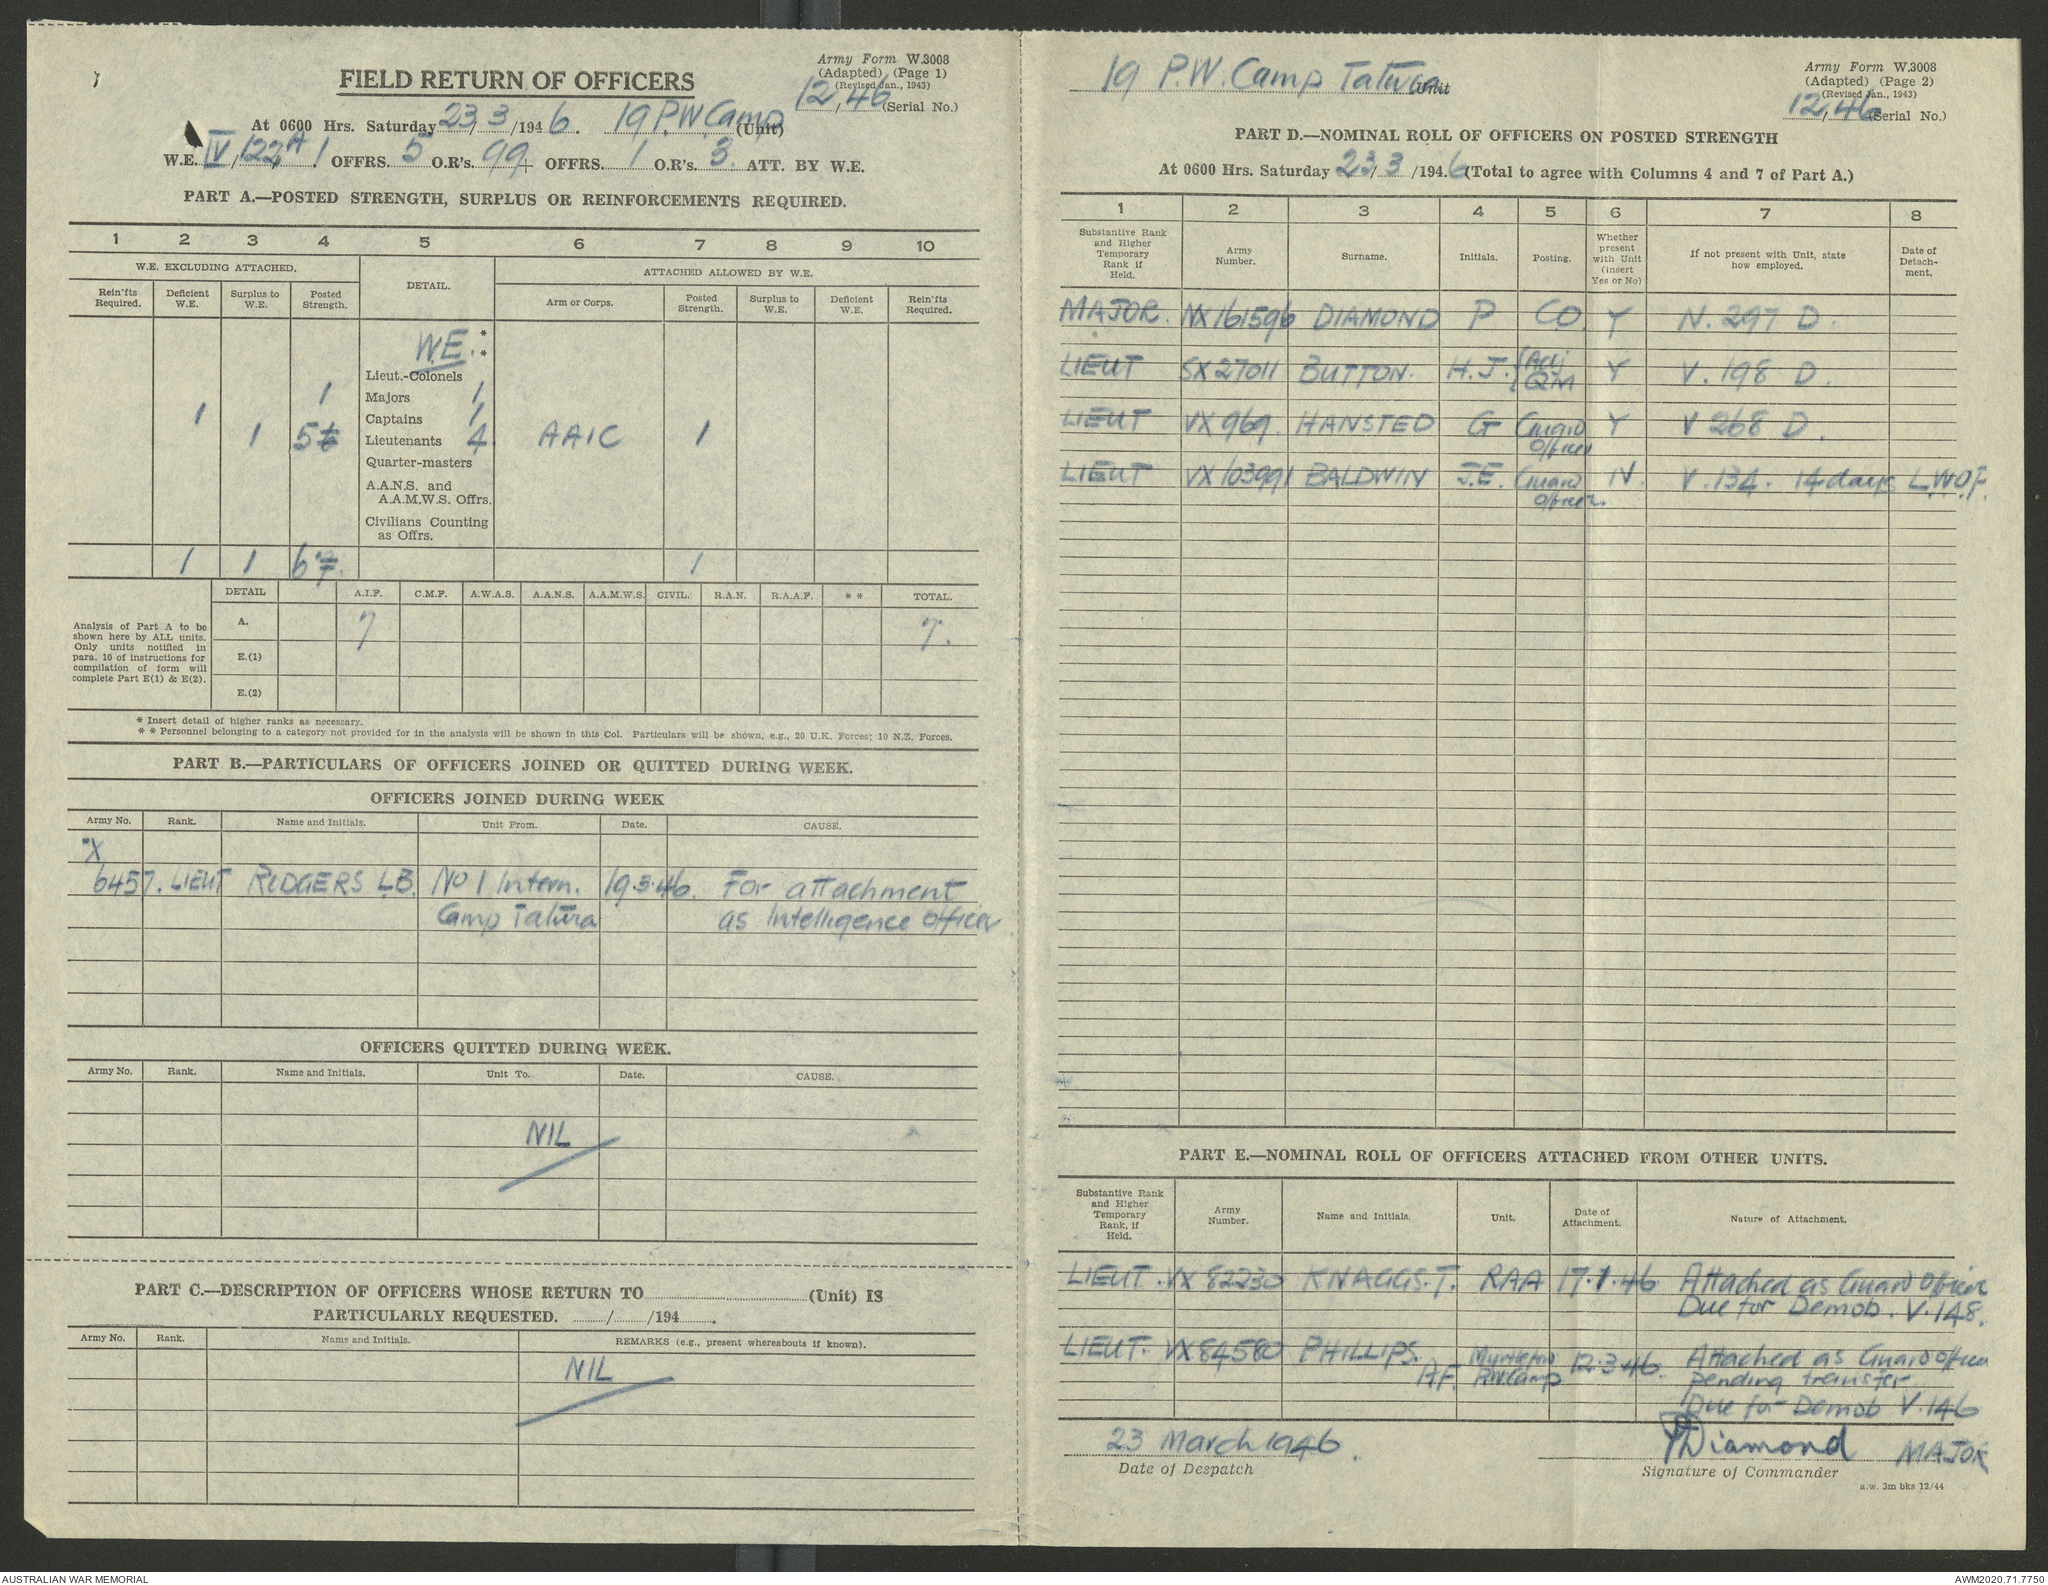 FIELD RETURN OF OFFICERS
Army Form W.3008
(Adapted) (Page 1)
(Revised Jan., 1943)
12/46 (Serial No.)
At 0600 Hrs. Saturday 23/3/1946. 19 P.W. Camp (Unit)
W.E. IV/122A/1 OFFRS. 5 O.R's. 99 + OFFRS. 1 O.R's. 3 ATT. BY W.E.
PART A.—POSTED STRENGTH, SURPLUS OR REINFORCEMENTS REQUIRED.
1 2 3 4 5 6 7 8 9 10
W.E. EXCLUDING ATTACHED. DETAIL. ATTACHED ALLOWED BY W.E.
Rein'fts Required. Deficient W.E. Surplus to W.E. Posted Strength. Arm or Corps. Posted Strength. Surplus to W.E. Deficient W.E. Rein'fts Required.
W.E. *
*
Lieut.-Colonels
1 Majors 1
1 Captains 1
1 5 6 Lieutenants 4 AAIC 1
Quarter-masters
A.A.N.S. and
A.A.M.W.S. Offrs.
Civilians Counting
as Offrs.
1 1 6 7. 1
DETAIL A.I.F. C.M.F. A.W.A.S. A.A.N.S. A.A.M.W.S. CIVIL. R.A.N. R.A.A.F. * * TOTAL.
Analysis of Part A to be shown here by ALL units. Only units notified in para. 10 of instructions for compilation of form will complete Part E(1) & E(2).
A. 7 7.
E.(1)
E.(2)
* Insert detail of higher ranks as necessary.
* * Personnel belonging to a category not provided for in the analysis will be shown in this Col. Particulars will be shown, e.g., 20 U.K. Forces; 10 N.Z. Forces.
PART B.—PARTICULARS OF OFFICERS JOINED OR QUITTED DURING WEEK.
OFFICERS JOINED DURING WEEK
Army No. Rank. Name and Initials. Unit From. Date. CAUSE.
X
6457. LIEUT RODGERS L.B. No 1 Intern. 19.3.46. For attachment
Camp Tatura as Intelligence Officer
OFFICERS QUITTED DURING WEEK.
Army No. Rank. Name and Initials. Unit To. Date. CAUSE.
NIL
PART C.—DESCRIPTION OF OFFICERS WHOSE RETURN TO (Unit) IS
PARTICULARLY REQUESTED. / /194 .
Army No. Rank. Name and Initials. REMARKS (e.g., present whereabouts if known).
NIL
19 P.W. Camp Tatura Unit
Army Form W.3008
(Adapted) (Page 2)
(Revised Jan., 1943)
12/46 (Serial No.)
PART D.—NOMINAL ROLL OF OFFICERS ON POSTED STRENGTH
At 0600 Hrs. Saturday 23/3/1946 (Total to agree with Columns 4 and 7 of Part A.)
1 2 3 4 5 6 7 8
Substantive Rank and Higher Temporary Rank if Held. Army Number. Surname. Initials. Posting. Whether present with Unit (insert Yes or No) If not present with Unit, state how employed. Date of Detach-ment.
MAJOR. NX161596 DIAMOND P CO. Y N. 297 D.
LIEUT SX27011 BUTTON. H.J. {Adj QM Y V. 198 D.
LIEUT VX969. HANSTED G Guard Officer Y V 268 D.
LIEUT VX103991 BALDWIN J.E. Guard Officer. N. V. 134. 14 days L.W.O.P.
PART E.—NOMINAL ROLL OF OFFICERS ATTACHED FROM OTHER UNITS.
Substantive Rank and Higher Temporary Rank, if Held. Army Number. Name and Initials. Unit. Date of Attachment. Nature of Attachment.
LIEUT. VX82230 KNAGGS. T. RAA 17.1.46 Attached as Guard Officer
Due for Demob. V.148.
LIEUT. VX84580 PHILLIPS. A.F. Myrtleford P.W. Camp 12.3.46. Attached as Guard Officer
pending transfer
Due for Demob V.146
23 March 1946.
Date of Despatch
P Diamond MAJOR
Signature of Commander
a.w. 3m bks 12/44
AUSTRALIAN WAR MEMORIAL
AWM2020.71.7750